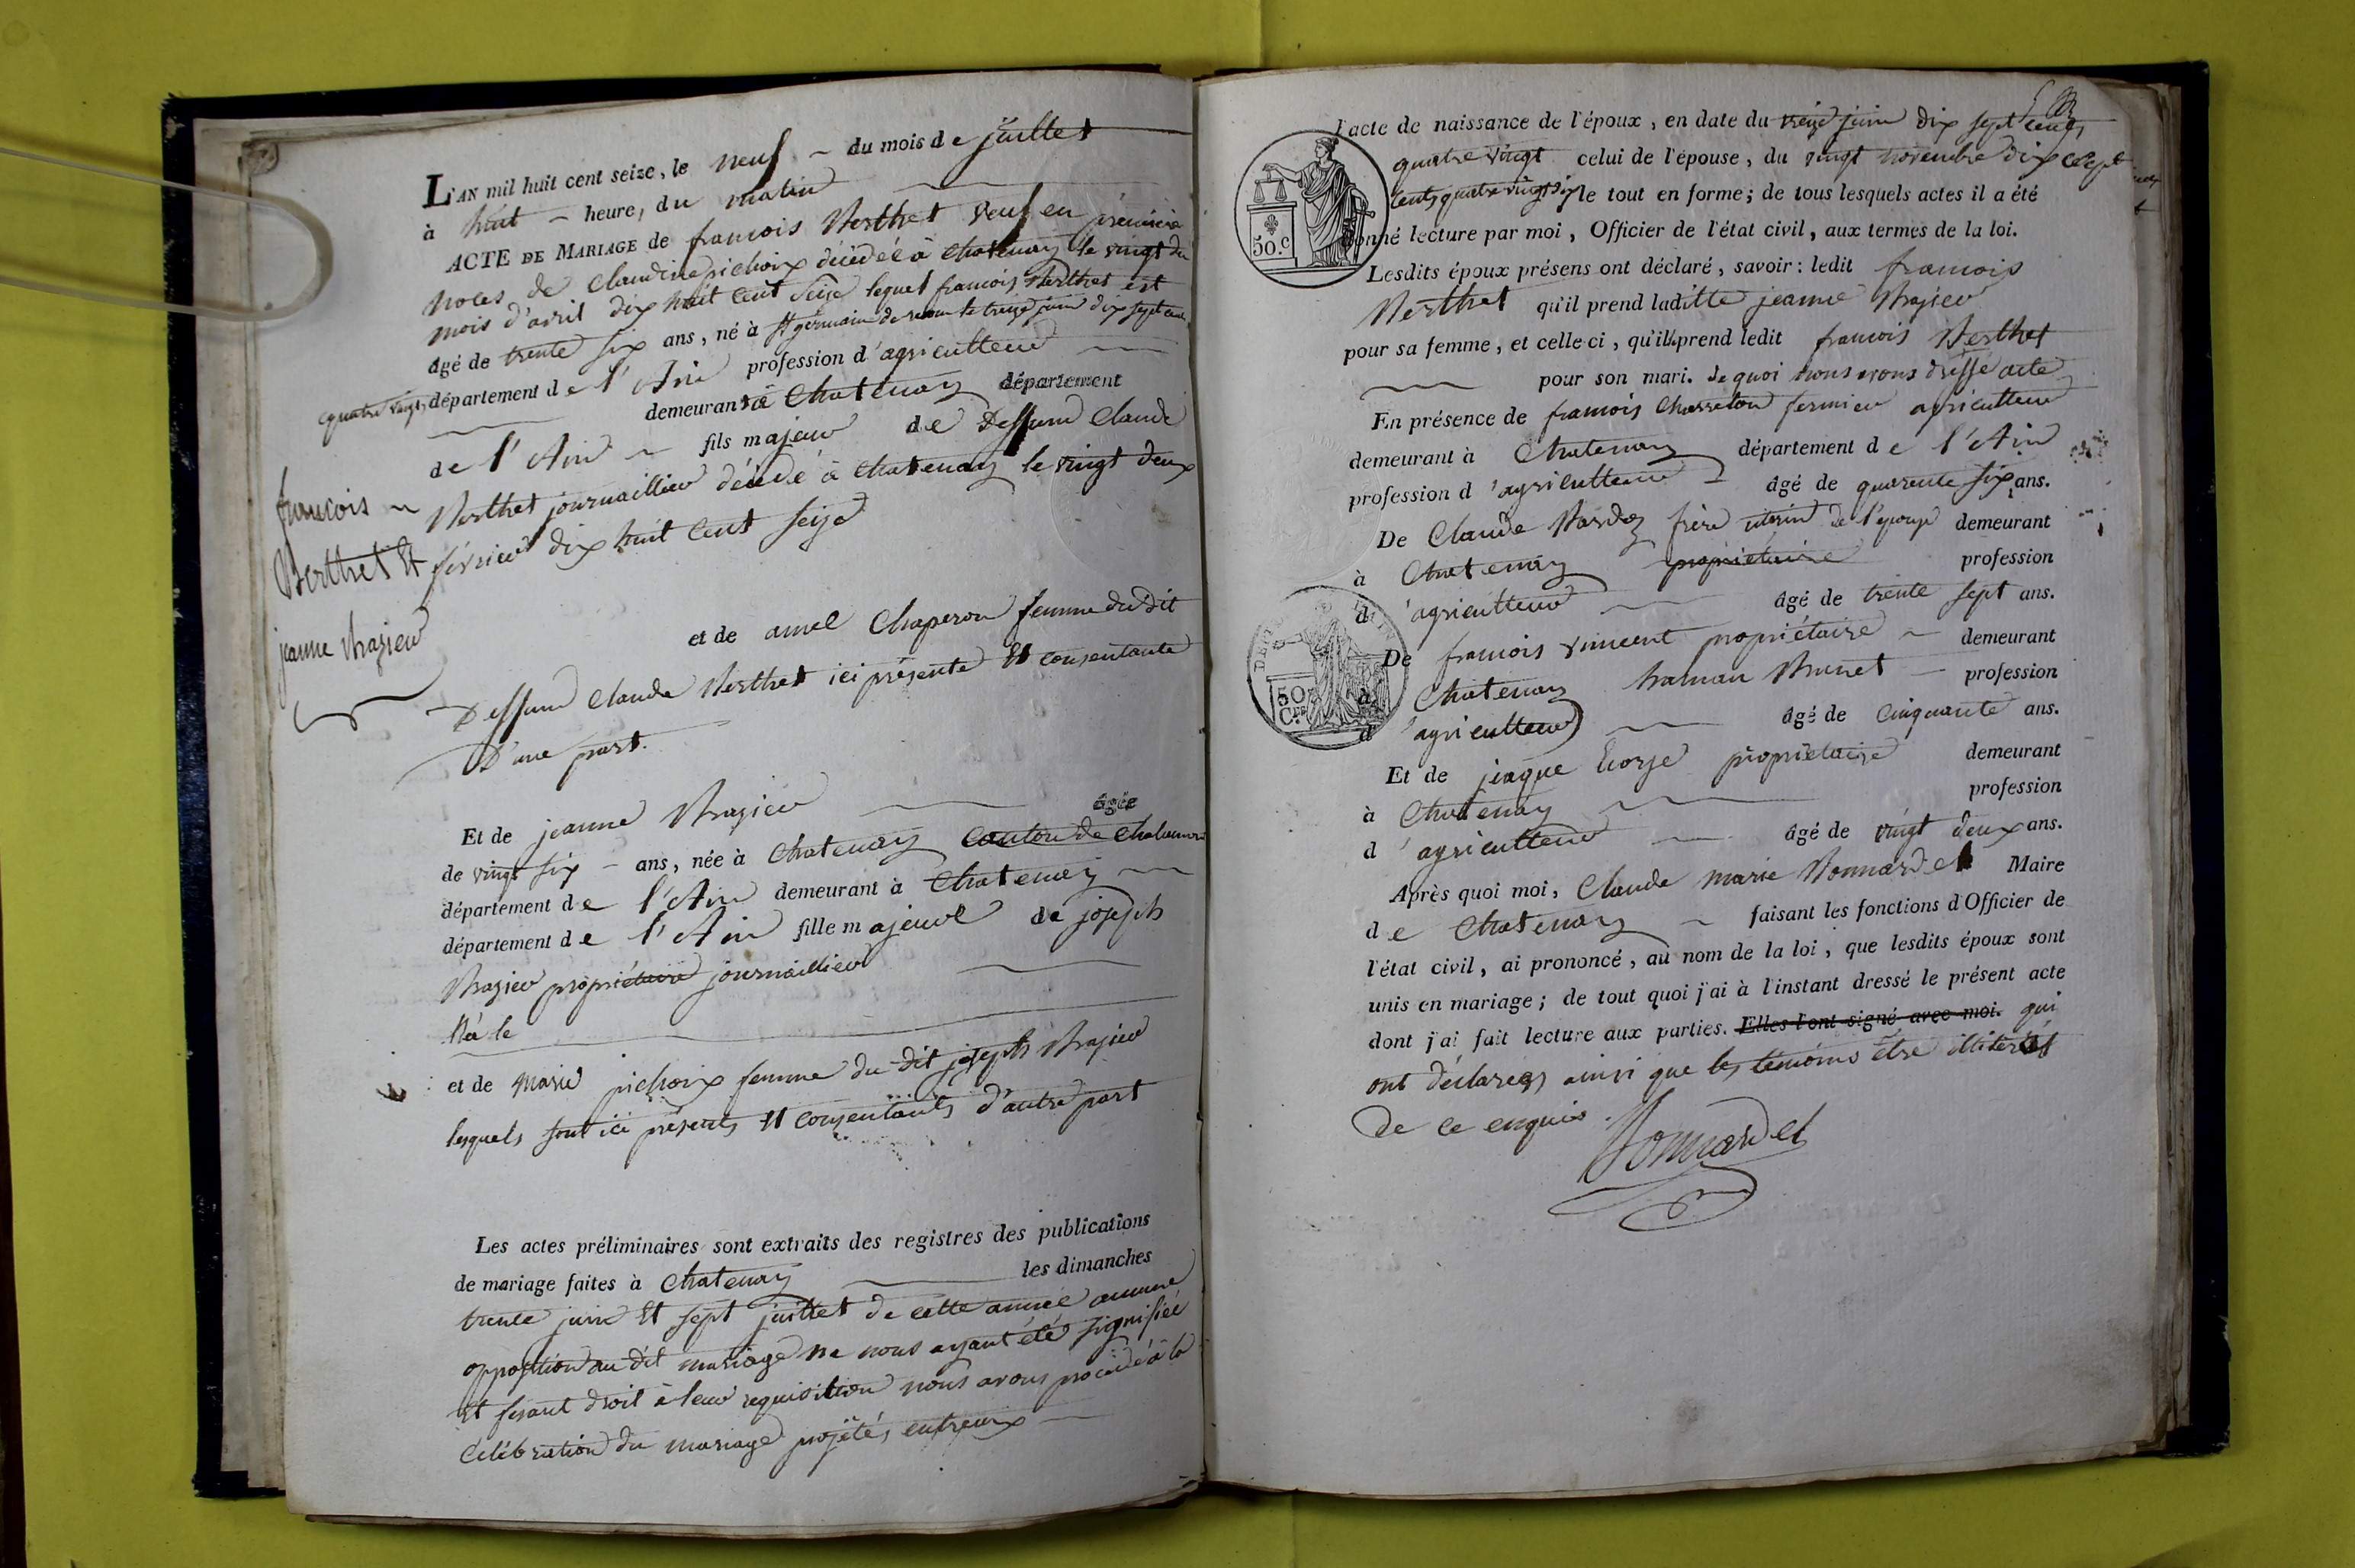 L'AN mil huit cent seize, le neuf du mois de juillet
à huit heure, du matin
ACTE DE MARIAGE de francois Berthet veuf en premiere
noces de Claudine pichoix décédée à Chatenay le vingt du
mois d'avril dix huit cent seize lequel francois Berthet est
âgé de trente six ans, né à St germain de renom le treize juin dix sept cent
quatre vingt, département de l'Ain profession d'agriculteur
demeurant à Chatenay département
de l'Ain fils majeur de Deffunt Claude
Berthet journaillier décédé à Chatenay le vingt deux
février dix huit cent seize
francois
Berthet Et
jeanne Brazier
et de anne Chaperon femme du dit
Deffunt Claude Berthet ici présente Et consentante
D'une part.
Et de jeanne Brazier âgée
de vingt six ans, née à Chatenay Canton de Chalamont
département de l'Ain demeurant à Chatenay
département de l'Ain fille majeure de joseph
Brazier propriétaire journaillier
Né le
et de Marie pichoix femme du dit joseph Brazier
lesquels sont ici présents Et consentants d'autre part
Les actes préliminaires sont extraits des registres des publications
de mariage faites à Chatenay les dimanches
trente juin Et sept juillet de cette année aucune
opposition au dit mariage ne nous ayant été signifiée
Et fesant droit à leur requisition nous avons procédé à la
Célébration du mariage projétés entreux
l'acte de naissance de l'époux, en date du treize juin dix sept cents
quatre vingt celui de l'épouse, du vingt novembre dix sept
cents quatre vingt dix le tout en forme; de tous lesquels actes il a été
donné lecture par moi, Officier de l'état civil, aux termes de la loi.
50.c
Lesdits époux présens ont déclaré, savoir: ledit francois
Berthet qu'il prend laditte jeanne Brazier
pour sa femme, et celle ci, qu'ille prend ledit francois Berthet
pour son mari. de quoi nous avons dressé acte
En présence de francois Charreton fermier agriculteur
demeurant à Chatenay département de l'Ain
profession d'agriculteur âgé de quarente six ans.
De Claude Bardoz frère uterin de l'epouse demeurant
à Chatenay propriétaire profession
d'agriculteur âgé de trente sept ans.
De francois vincent propriétaire demeurant
à Chatenay hamau Brunet profession
d'agriculteur âgé de Cinquante ans.
50 Ces
Et de jeaque Corse propriétaire demeurant
à Chatenay profession
d'agriculteur âgé de vingt deux ans.
Après quoi moi, Claude marie Bonnardet Maire
de Chatenay faisant les fonctions d'Officier de
l'état civil, ai prononcé, au nom de la loi, que lesdits époux sont
unis en mariage; de tout quoi j'ai à l'instant dressé le présent acte
dont j'ai fait lecture aux parties. Elles l'ont signé avec moi. qui
ont déclarées ainsi que les temoins être illiterés
De ce enquis.
Bonnardet